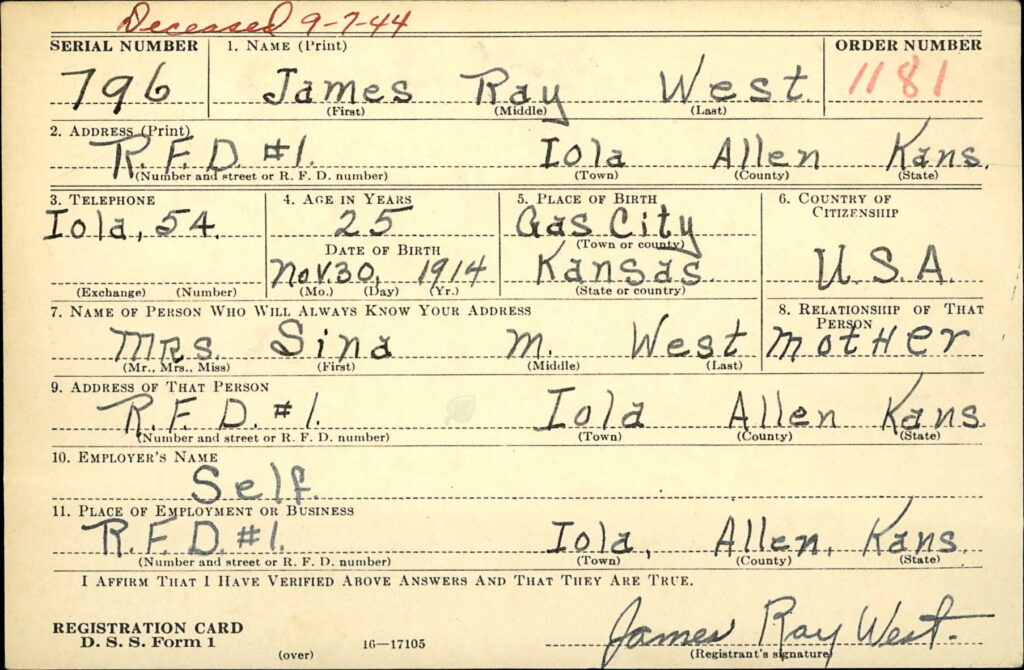 Deceased 9-7-44
SERIAL NUMBER 1. NAME (Print) ORDER NUMBER
796 James Ray West. 1181
(First) (Middle) (Last)
2. ADDRESS (Print)
R.F.D. #1. Iola Allen Kans.
(Number and street or R. F. D. number) (Town) (County) (State)
3. TELEPHONE 4. AGE IN YEARS 5. PLACE OF BIRTH 6. COUNTRY OF CITIZENSHIP
Iola, 54. 25 Gas City
DATE OF BIRTH (Town or county)
Nov. 30, 1914 Kansas. U.S.A.
(Exchange) (Number) (Mo.) (Day) (Yr.) (State or country)
7. NAME OF PERSON WHO WILL ALWAYS KNOW YOUR ADDRESS 8. RELATIONSHIP OF THAT PERSON
Mrs. Sina M. West Mother
(Mr., Mrs., Miss) (First) (Middle) (Last)
9. ADDRESS OF THAT PERSON
R.F.D. #1. Iola Allen Kans.
(Number and street or R. F. D. number) (Town) (County) (State)
10. EMPLOYER'S NAME
Self.
11. PLACE OF EMPLOYMENT OR BUSINESS
R.F.D. #1. Iola, Allen, Kans.
(Number and street or R. F. D. number) (Town) (County) (State)
I AFFIRM THAT I HAVE VERIFIED ABOVE ANSWERS AND THAT THEY ARE TRUE.
REGISTRATION CARD James Ray West.
D. S. S. Form 1 (over) 16—17105 (Registrant's signature)